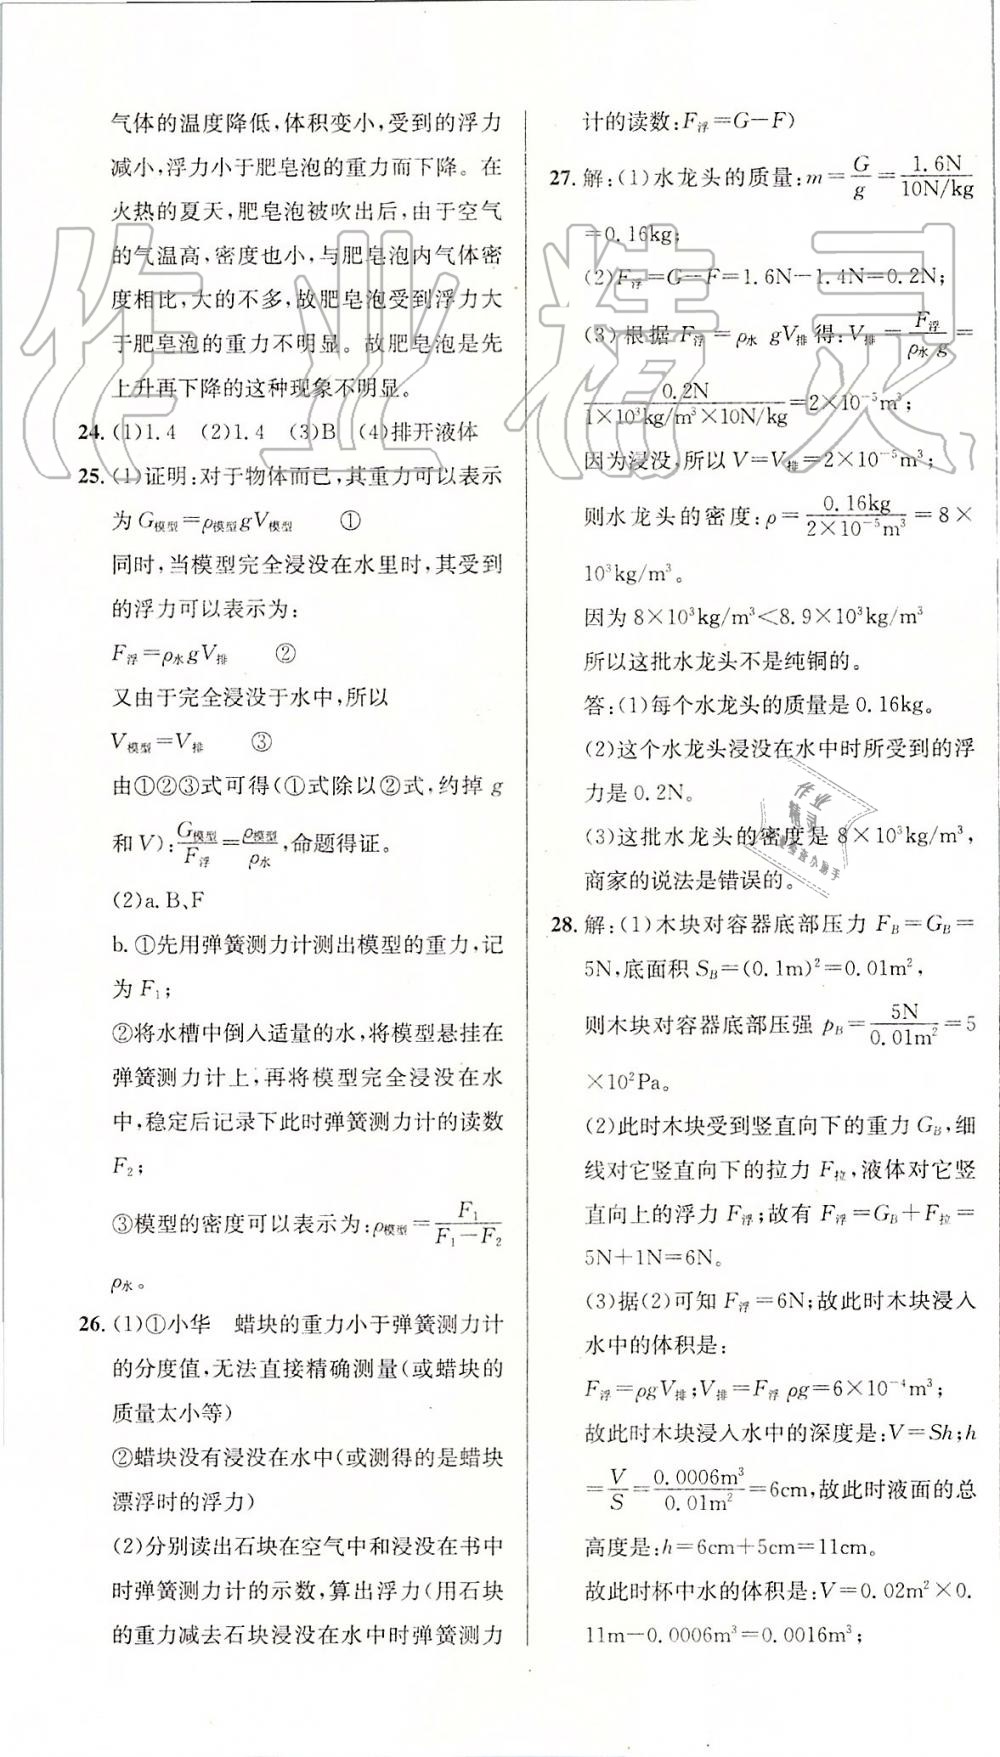 气体的温度降低,体积变小,受到的浮力
减小,浮力小于肥皂泡的重力而下降。在
火热的夏天,肥皂泡被吹出后,由于空气
的气温高,密度也小,与肥皂泡内气体密
度相比,大的不多,故肥皂泡受到浮力大
于肥皂泡的重力不明显。故肥皂泡是先
上升再下降的这种现象不明显。
24. (1)1.4 (2)1.4 (3)B (4)排开液体
25. (1)证明:对于物体而已,其重力可以表示
为 G模型=ρ模型gV模型 ①
同时,当模型完全浸没在水里时,其受到
的浮力可以表示为:
F浮=ρ水gV排 ②
又由于完全浸没于水中,所以
V模型=V排 ③
由①②③式可得(①式除以②式,约掉 g
和 V):G模型/F浮=ρ模型/ρ水,命题得证。
(2)a.B、F
b.①先用弹簧测力计测出模型的重力,记
为 F₁;
②将水槽中倒入适量的水,将模型悬挂在
弹簧测力计上,再将模型完全浸没在水
中,稳定后记录下此时弹簧测力计的读数
F₂;
③模型的密度可以表示为:ρ模型=F₁/(F₁-F₂)
ρ水。
26. (1)①小华 蜡块的重力小于弹簧测力计
的分度值,无法直接精确测量(或蜡块的
质量太小等)
②蜡块没有浸没在水中(或测得的是蜡块
漂浮时的浮力)
(2)分别读出石块在空气中和浸没在书中
时弹簧测力计的示数,算出浮力(用石块
的重力减去石块浸没在水中时弹簧测力
计的读数:F浮=G-F)
27. 解:(1)水龙头的质量:m=G/g=1.6N/10N/kg
=0.16kg;
(2)F浮=G-F=1.6N-1.4N=0.2N;
(3)根据 F浮=ρ水 gV排 得:V排=F浮/ρ水 g=
0.2N/1×10³kg/m³×10N/kg=2×10⁻⁵m³;
因为浸没,所以 V=V排=2×10⁻⁵m³;
则水龙头的密度:ρ=0.16kg/2×10⁻⁵m³=8×
10³kg/m³。
因为 8×10³kg/m³<8.9×10³kg/m³
所以这批水龙头不是纯铜的。
答:(1)每个水龙头的质量是 0.16kg。
(2)这个水龙头浸没在水中时所受到的浮
力是 0.2N。
(3)这批水龙头的密度是 8×10³kg/m³,
商家的说法是错误的。
28. 解:(1)木块对容器底部压力 F_B=G_B=
5N,底面积 S_B=(0.1m)²=0.01m²,
则木块对容器底部压强 p_B=5N/0.01m²=5
×10²Pa。
(2)此时木块受到竖直向下的重力 G_B,细
线对它竖直向下的拉力 F拉,液体对它竖
直向上的浮力 F浮;故有 F浮=G_B+F拉=
5N+1N=6N。
(3)据(2)可知 F浮=6N;故此时木块浸入
水中的体积是:
F浮=ρgV排;V排=F浮 ρg=6×10⁻⁴m³;
故此时木块浸入水中的深度是:V=Sh;h
=V/S=0.0006m³/0.01m²=6cm,故此时液面的总
高度是:h=6cm+5cm=11cm。
故此时杯中水的体积是:V=0.02m²×0.
11m-0.0006m³=0.0016m³;
作业精灵
作业
精灵